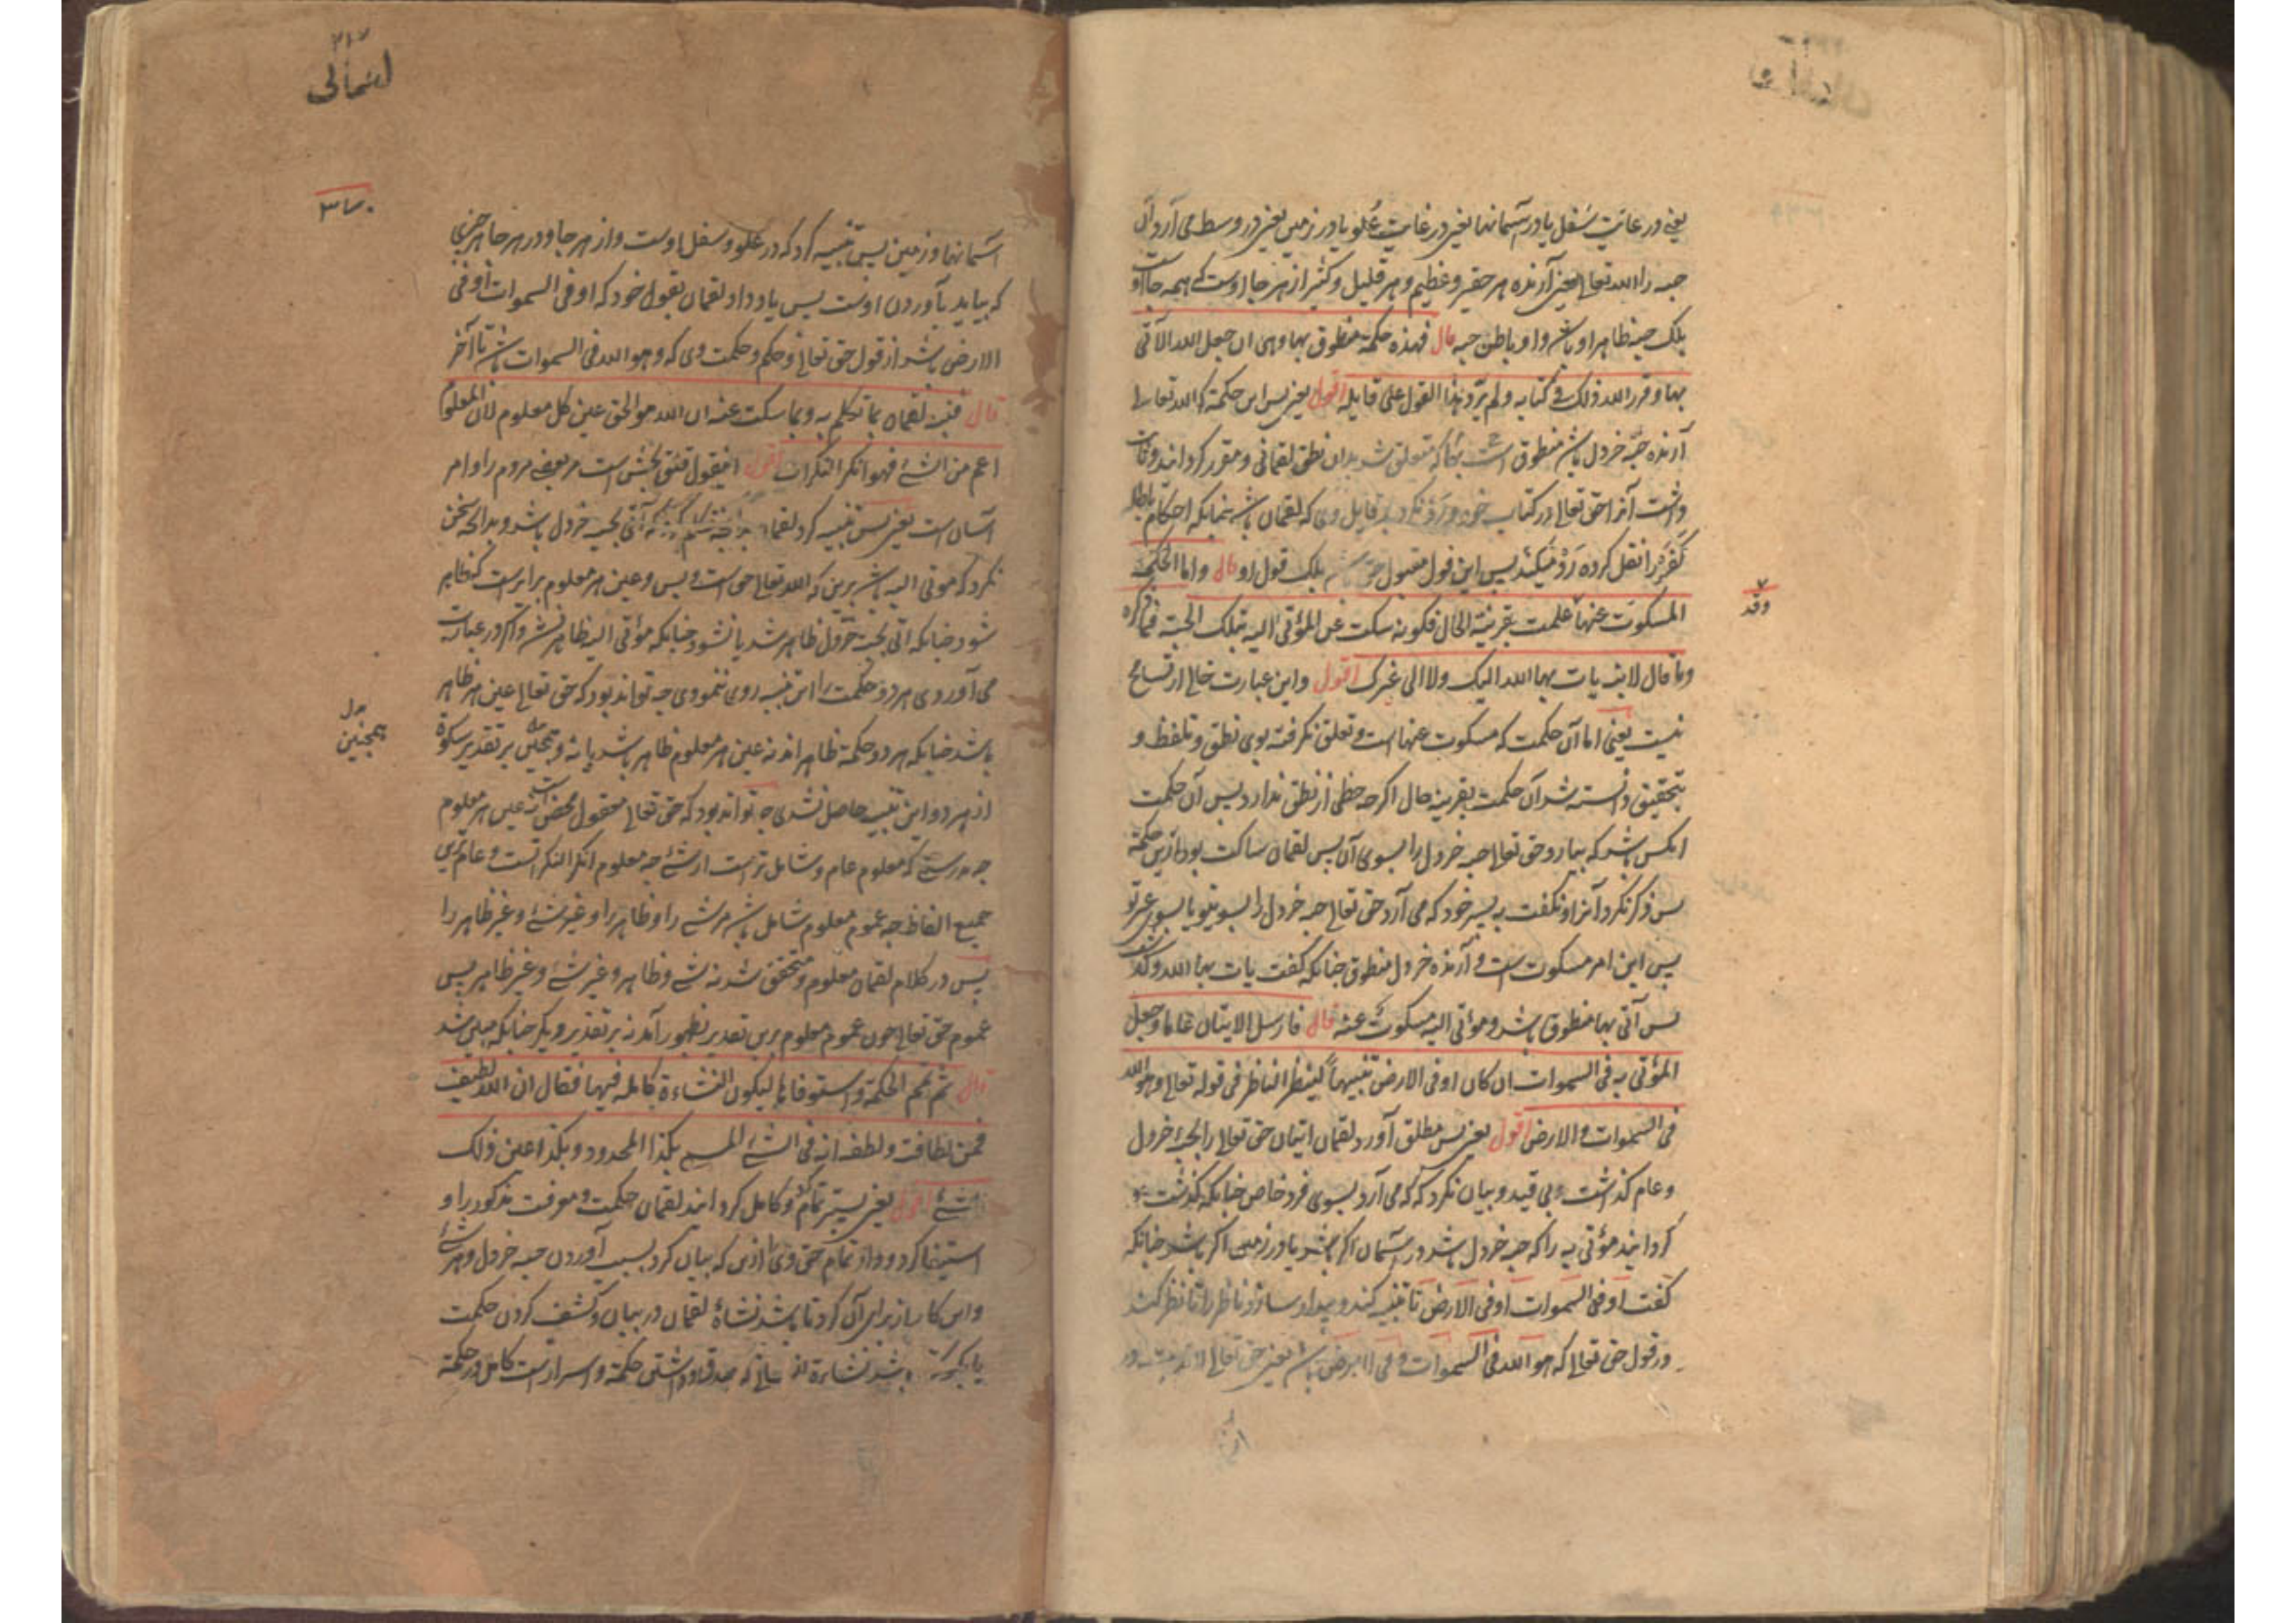 یعنی در غایت سفل یا در آسمانها یعنی در غایت علو یا در زمین یعنی در وسط می آرد آن
حبه را الله تعالی یعنی آرنده هر حقیر و عظیم و هر قلیل و کثیر از هر جا اوست که همه جا او
بلک حبه ظاهر او باشد و او باطن حبه قال فهذه حکمة منطوق بها وهی ان جعل الله الآتی
بها و قرر الله ذلک فی کتابه ولم یرد هذا القول علی قایله اقول یعنی پس این حکمة که الله تعالی
آرنده حبه خردل باشد منطوق است بها که متعلق شد بدان نطق لقمانی و مقرر گردانید و ثابت
داشت آنرا حق تعالی در کتاب خود و رد نکرد بر قایل وی که لقمان باشد چنانکه احکام باطله
کفره را نقل کرده رد میکند پس این قول مقبول حق باشد بلک قول او قال واما الحکمة
المسکوت عنها علمت بقرینة الحال فکونه سکت عن المؤتی الیه بتلک الحبة فما ذکره
وقد
وما قال لابنه یات بها الله الیک ولا الی غیرک اقول و این عبارت خالی از تسامح
نیست یعنی اما آن حکمت که مسکوت عنها است و تعلق نگرفته بوی نطق و تلفظ و
بتحقیق دانسته شد آن حکمت بقرینه حال اگرچه حظی از نطق ندارد پس آن حکمت
آنکس باشد که بیارد حق تعالی حبه خردل را بسوی آن پس لقمان ساکت بود ازین حکمة
پس ذکر نکرد آنرا و نگفت به پسر خود که می آرد حق تعالی حبه خردل را بسوی تو یا بسوی غیر تو
پس این امر مسکوت است و آرنده خردل منطوق چنانکه گفت یات بها الله
پس آتی بها منطوق باشد و مؤتی الیه مسکوت عنه قال فارسل الاتیان عاما وجعل
المؤتی به فی السموات ان کان او فی الارض تنبیها لینظر الناظر فی قوله تعالی وهو الله
فی السموات والارض اقول یعنی پس مطلق آورد لقمان اتیان حق تعالی را بحبه خردل
و عام گذاشت بی قید و بیان نکرد که می آرد بسوی فرد خاص چنانکه گذشت و
گردانید مؤتی به را که حبه خردل باشد در آسمان اگر باشد یا در زمین اگر باشد چنانکه
گفت او فی السموات او فی الارض تا تنبیه کند و بیدار سازد ناظر را تا نظر کند
در قول حق تعالی که هو الله فی السموات و فی الارض باشد یعنی حق تعالی
۲۱۷
لقمانی
۳۷۰
آسمانها و زمین پس تنبیه کرد که در علو و سفل اوست و از هر جا و در هر جا هر چیزی
که بیاید بآوردن اوست پس یاد داد لقمان بقول خود که او فی السموات او فی
الارض باشد از قول حق تعالی و حکم و حکمت وی که وهو الله فی السموات باشد تا آخر
قال فنبه لقمان بما تکلم به وبما سکت عنه ان الله هو الحق عین کل معلوم لان المعلوم
اعم من الشئ فهو انکر النکرات اقول این قول فتق بخش است مر بعض مردم را و امر
آسان است یعنی پس تنبیه کرد لقمان آتی بحبه خردل باشد و بدانچه سخن
نکرد که مؤتی الیه باشد برین که الله تعالی حق است و بس و عین هر معلوم برابر است که ظاهر
شود چنانکه آتی بحبه خردل ظاهر شد یا نشود چنانکه مؤتی الیه ظاهر نشد و اگر در عبارت
می آوردی هر دو حکمت را این تنبیه روی ننمودی چه تواند بود که حق تعالی عین هر ظاهر
باشد چنانکه هر دو حکمة ظاهراند نه عین هر معلوم ظاهر باشد یا نه و همچنین بر تقدیر سکوت
همچنین
از هر دو این تنبیه حاصل نشدی چه تواند بود که حق تعالی معقول محض است نه عین هر معلوم
چه بدرستی که معلوم عام و شامل تر است از شئ چه معلوم انکر النکراتست و عام ترین
جمیع الفاظ چه عموم معلوم شامل باشد مر شئ را و ظاهر را و غیر شئ و غیر ظاهر را
پس در کلام لقمان معلوم و متحقق شد نه شئ و ظاهر و غیر شئ و غیر ظاهر پس
عموم حق تعالی چون عموم معلوم برین تقدیر بظهور آمد نه بر تقدیر دیگر چنانکه مبین شد
قال ثم تمم الحکمة واستوفاها لیکون النشاءة کاملة فیها فقال ان الله لطیف
فمن لطافته ولطفه انه فی الشئ المسمی بکذا المحدود بکذا عین ذلک
الشئ اقول یعنی پستر تمام و کامل گردانید لقمان حکمت و معرفت مذکور را و
استیفا کرد و داد تمام حق وی را ازین که بیان کرد بسبب آوردن حبه خردل و هر شئ
و این کار از برای آن کرد تا باشد نشاة لقمان در بیان و کشف کردن حکمت
باشد نشاءة و اسرار است کامل در حکمة